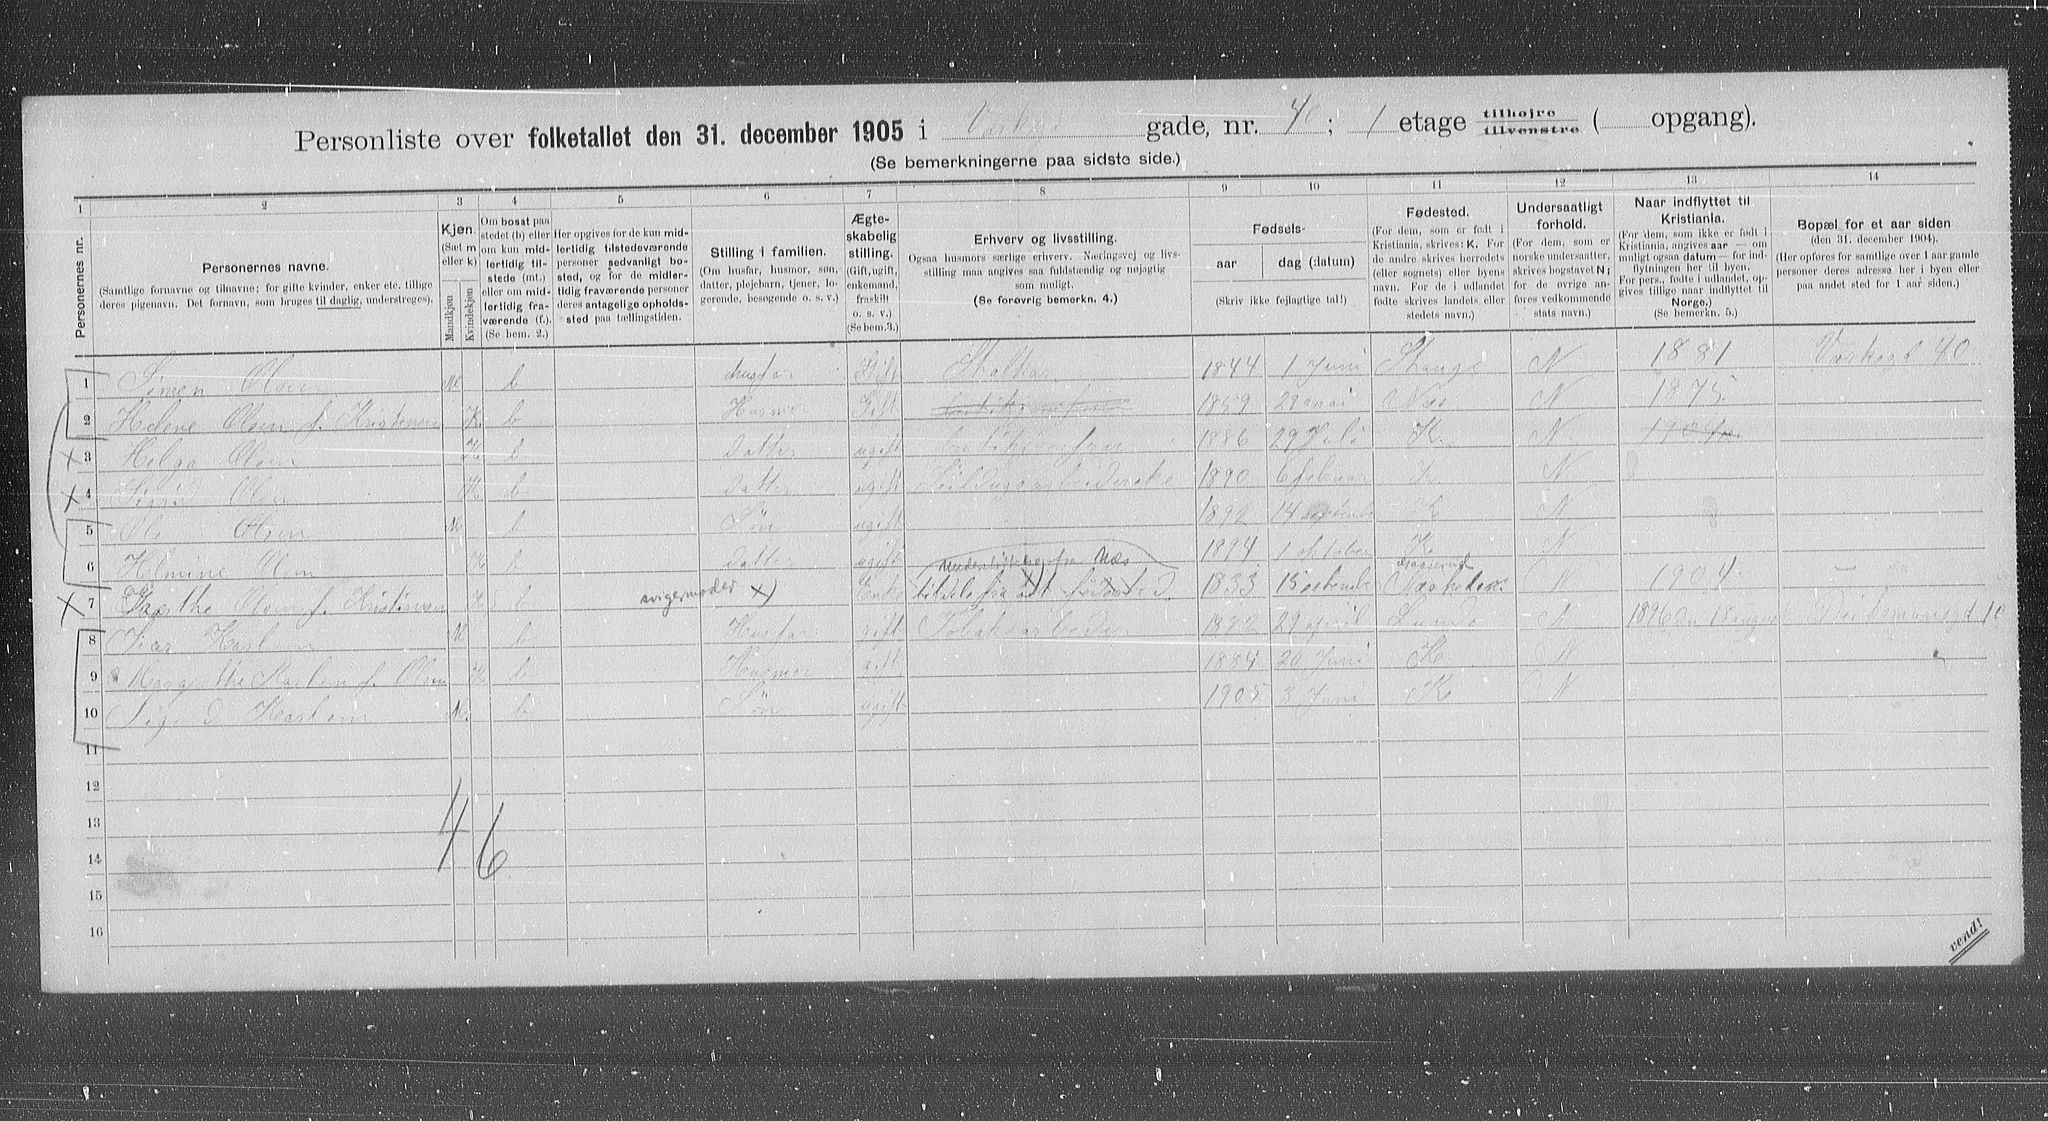 Personliste over folketallet den 31. december 1905 i Varkegd gade, nr. 40; 1 etage tilhøjre tilvenstre ( opgang).
(Se bemerkningerne paa sidste side.)
1 2 3 4 5 6 7 8 9 10 11 12 13 14
Personernes nr.
Personernes navne.
(Samtlige fornavne og tilnavne; for gifte kvinder, enker etc. tillige deres pigenavn. Det fornavn, som bruges til daglig, understreges).
Kjøn.
(Sæt m eller k)
Mandkjøn
Kvindekjøn
Om bosat paa stedet (b) eller om kun midlertidig tilstede (mt.) eller om midlertidig fraværende (f.). (Se bem. 2.)
Her opgives for de kun midlertidig tilstedeværende personer sedvanligt bosted, og for de midlertidig fraværende personer deres antagelige opholdssted paa tællingstiden.
Stilling i familien.
(Om husfar, husmor, søn, datter, plejebarn, tjener, logerende, besøgende o. s. v.)
Ægteskabelig stilling.
(Gift, ugift, enkemand, fraskilt o. s. v.) (Se bem.3.)
Erhverv og livsstilling.
Ogsaa husmors særlige erhverv. Næringsvej og livsstilling maa angives saa fuldstændig og nøjagtig som muligt.
(Se forøvrig bemerkn. 4.)
Fødsels-
aar
dag (datum)
(Skriv ikke fejlagtige tal!)
Fødested.
(For dem, som er født i Kristiania, skrives: K. For de andre skrives herredets (eller sognets) eller byens navn. For de i udlandet fødte skrives landets eller stedets navn.)
Undersaatligt forhold.
(For dem, som er norske undersaatter, skrives bogstavet N; for de øvrige anføres vedkommende stats navn.)
Naar indflyttet til Kristiania.
(For dem, som ikke er født i Kristiania, angives aar — om muligt ogsaa datum — for indflytningen her til byen. For pers., fødte i udlandet, opgives tillige naar indflyttet til Norge.)
(Se bemerkn. 5.)
Bopæl for et aar siden
(den 31. december 1904).
(Her opføres for samtlige over 1 aar gamle personer deres adresse her i byen eller paa andet sted for 1 aar siden.)
1 Simen Olsen M b husfar Gift 1844 1 Juni Stange N 1881 Varkegd 40
2 Helene Olsen f. Kristensen K. b Husmor Gift 1859 29 mai Næs N 1875
3 Helga Olsen K. b datter ugift 1886 29 Juli K. N.
4 Sigrid Olsen K. b datter ugift 1890 6 februar K N
5 Ole Olsen M b Søn ugift 1892 14 K N
6 Helmine Olsen K b datter ugift 1894 1 oktober K N
7 Olsen f. Kristensen K b svigermoder x) Enke 1833 15 N 1904 —
8 Ivar Karlsen M b Husfar gift Tobaksarbeider 1882 29 april N 1896 18 august 10
9 Margrethe Karlsen f. Olsen K. b Husmor gift 1884 20 Juni K N
10 Sigurd Karlsen M. b Søn ugift 1905 3 Juni K N
11
12
13
14
15
16
4 6
vend!